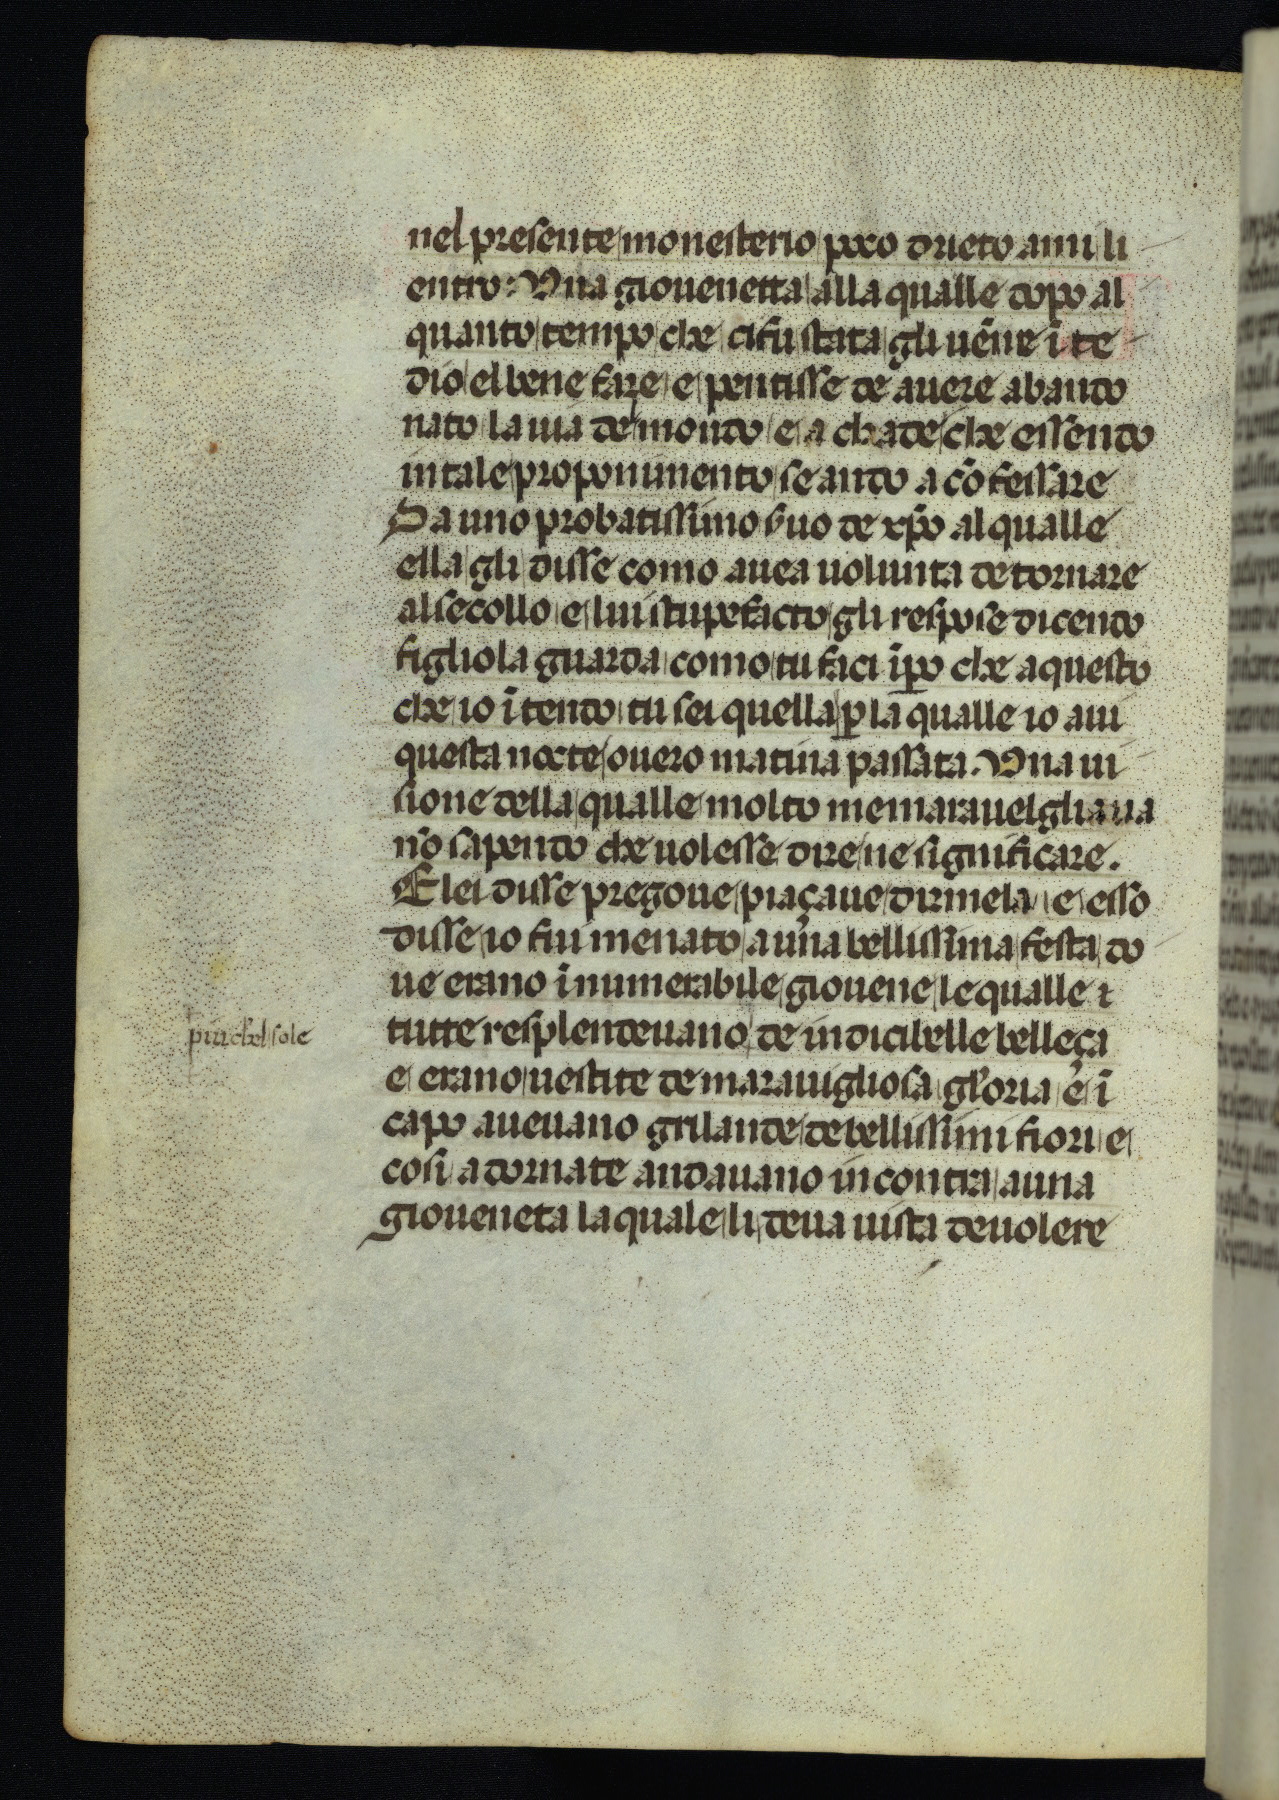 nel presente monesterio poco drieto anni li
entro: Una giouenetta alla qualle dopo al
quanto tempo che ci fu stata gli uēne ī te
dio el bene fare e pentisse de auere abando
nato la uia del mondo e achade che essendo
in tale proponimento se ando a cōfessare
Da uno probatissimo s̄uo de xp̄o al qualle
ella gli disse como auea uolunta de tornare
al secollo e lui stupefacto gli respose dicendo
figliola guarda como tu faci īpo che a questo
che io ītendo tu sei quella ꝑ la qualle io aui
questa nocte ouero matina passata. Una ui
sione della qualle molto me marauelgliaua
nō sapendo che uolesse dire ne significare.
E lei disse pregoue piaçaue dirmela e esso
disse io fui menato a una bellissima festa do
ue erano īnumerabile giouene le qualle
tutte resplendeuano de indicibelle belleça
piu chel sole
e erano uestite de marauigliosa gloria e ī
capo aueuano grilande de bellissimi fiori e
cosi adornate andauano incontra a una
gioueneta la quale li deua uista de uolere